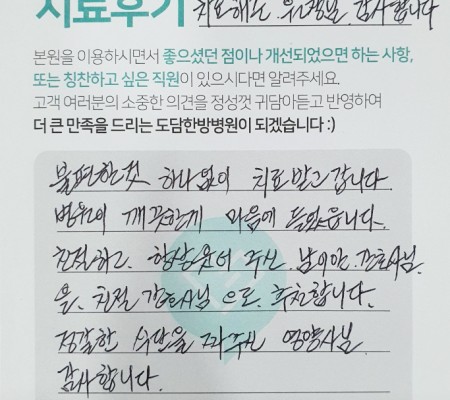 치료후기 치료해준 우원장님 감사합니다
본원을 이용하시면서 좋으셨던 점이나 개선되었으면 하는 사항,
또는 칭찬하고 싶은 직원이 있으시다면 알려주세요.
고객 여러분의 소중한 의견을 정성껏 귀담아듣고 반영하여
더 큰 만족을 드리는 도담한방병원이 되겠습니다 :)
불편한것 하나 없이 치료 받고 갑니다
병원이 깨끗한게 마음에 들었읍니다.
친절하고. 항상 웃어 주신. 남이안. 간호사님.
을. 친절 간호사님 으로. 추천합니다.
정갈한 식단을 짜주신 영양사님.
감사합니다.